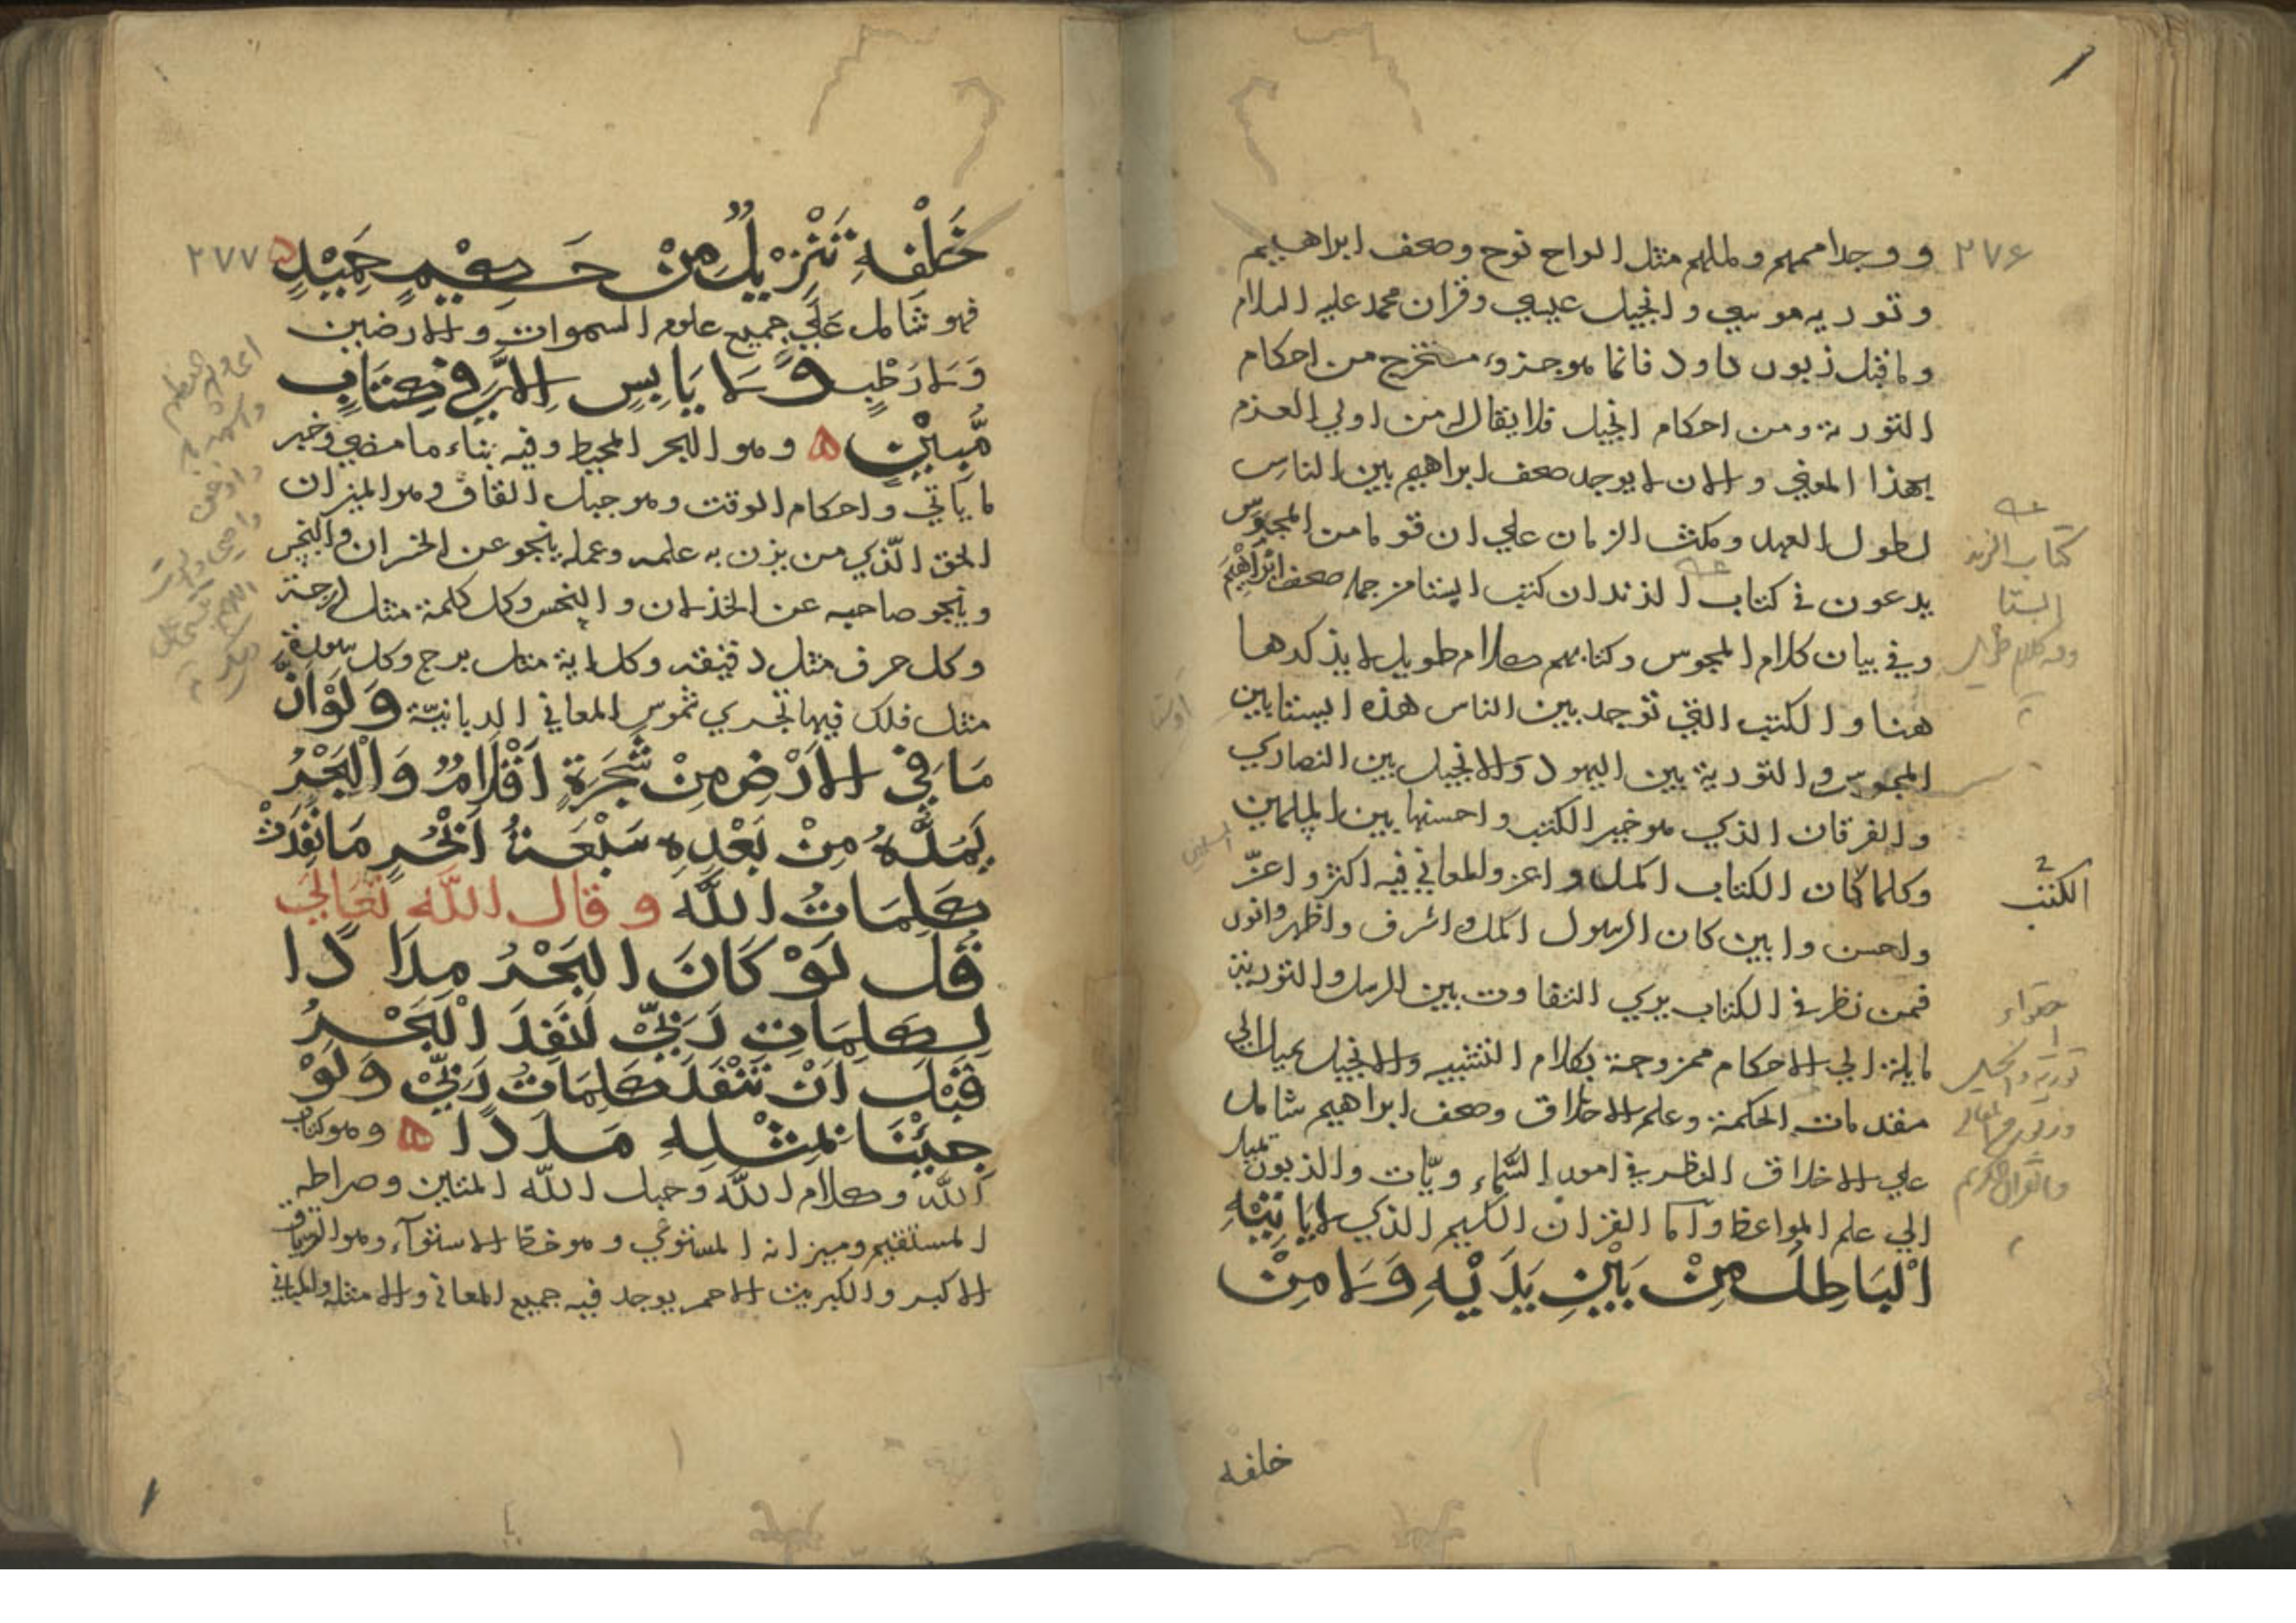 ٢٧۶
ووجد اممهم ومللهم مثل الواح نوح وصحف ابراهيم
وتورية موسي وانجيل عيسي وقران محمد عليه السلام
وما قيل زبور داود فانما هو جزوء مستخرج من احكام
التورية ومن احكام انجيل فلا يقال له من اولي العزم
بهذا المعني والان لا يوجد صحف ابراهيم بين الناس
لطول العهد ومكث الزمان علي ان قوما من المجوس
يدعون في كتاب الزند ان كتب ابستا من جملة صحف ابراهيم
وفي بيان كلام المجوس وكتابهم كلام طويل لا يذكرها
هنا والكتب التي توجد بين الناس هذه ابستا بين
المجوس والتورية بين اليهود والانجيل بين النصاري
والفرقان الذي هو خير الكتب واحسنها بين المسلمين
وكلما كان الكتاب اكمل واعز والمعاني فيه اكثر واعزّ
واحسن وابين كان الرسول اكمل واشرف واظهر وانور
فمن نظر في الكتاب يري التفاوت بين الرسل والتورية
مايلة الي الاحكام ممزوجة بكلام التشبيه والانجيل يميل الي
مقدمات الحكمة وعلم الاخلاق وصحف ابراهيم شامل
علي الاخلاق النظر في امور السماء ويّات والزبور تميل
الي علم المواعظ واما القران الكريم الذي لا ياتيه
الْبَاطِلُ مِنْ بَيْنِ يَدَيْهِ وَلَا مِنْ
خلفه
كتاب الزند
ابستا
الكتب
تورية وانجيل
٢٧٧
خَلْفِهِ تَنْزِيْلٌ مِنْ حَكِيْمٍ حَمِيْدٍ
فهو شامل علي جميع علوم السموات والارضين
وَلَا رَطْبٍ وَلَا يَابِسٍ اِلَّا فِي كِتَابٍ
مُّبِيْنٍ وهو البحر المحيط وفيه بناء ما مضي وخبر
ما ياتي واحكام الوقت وهو جبل القاف وهو الميزان
الحق الّذي من يزن به علمه وعمله ينجو عن الخسران
وينجو صاحبه عن الخذلان والنحس وكل كلمة مثل درجة
وكل حرف مثل دقيقه وكل اية مثل برج وكل سورة
مثل فلك فيها تجري شموس المعاني الربانيّة وَلَوْ اَنَّ
مَا فِي الْاَرْضِ مِنْ شَجَرَةٍ اَقْلَامٌ وَالْبَحْرُ
يَمُدُّهُ مِنْ بَعْدِهِ سَبْعَةُ اَبْحُرٍ مَا نَفِدَتْ
كَلِمَاتُ اللّٰه وقال اللّه تعالي
قُلْ لَوْ كَانَ الْبَحْرُ مِدَادًا
لِكَلِمَاتِ رَبِّيْ لَنَفِدَ الْبَحْرُ
قَبْلَ اَنْ تَنْفَدَ كَلِمَاتُ رَبِّيْ وَلَوْ
جِئْنَا بِمِثْلِهِ مَدَدًا وهو كتاب
اللّه وكلام اللّه وحبل اللّه المتين وصراطه
المستقيم وميزانه المستوي وهو خط الاستوآء وهو الترياق
الاكبر والكبريت الاحمر يوجد فيه جميع المعاني والامثلة والمباني